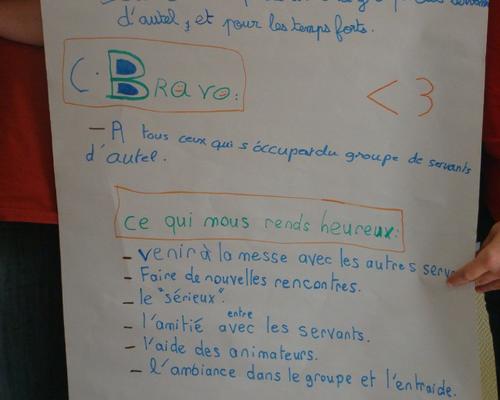 d'autel, et pour les temps forts.
C. Bravo:
<3
- A tous ceux qui s'occupent du groupe de servants
d'autel.
ce qui nous rends heureux:
- venir à la messe avec les autres
- Faire de nouvelles rencontres.
- le "sérieux".
- l'amitié avec entre les servants.
- l'aide des animateurs.
- l'ambiance dans le groupe et l'entraide.